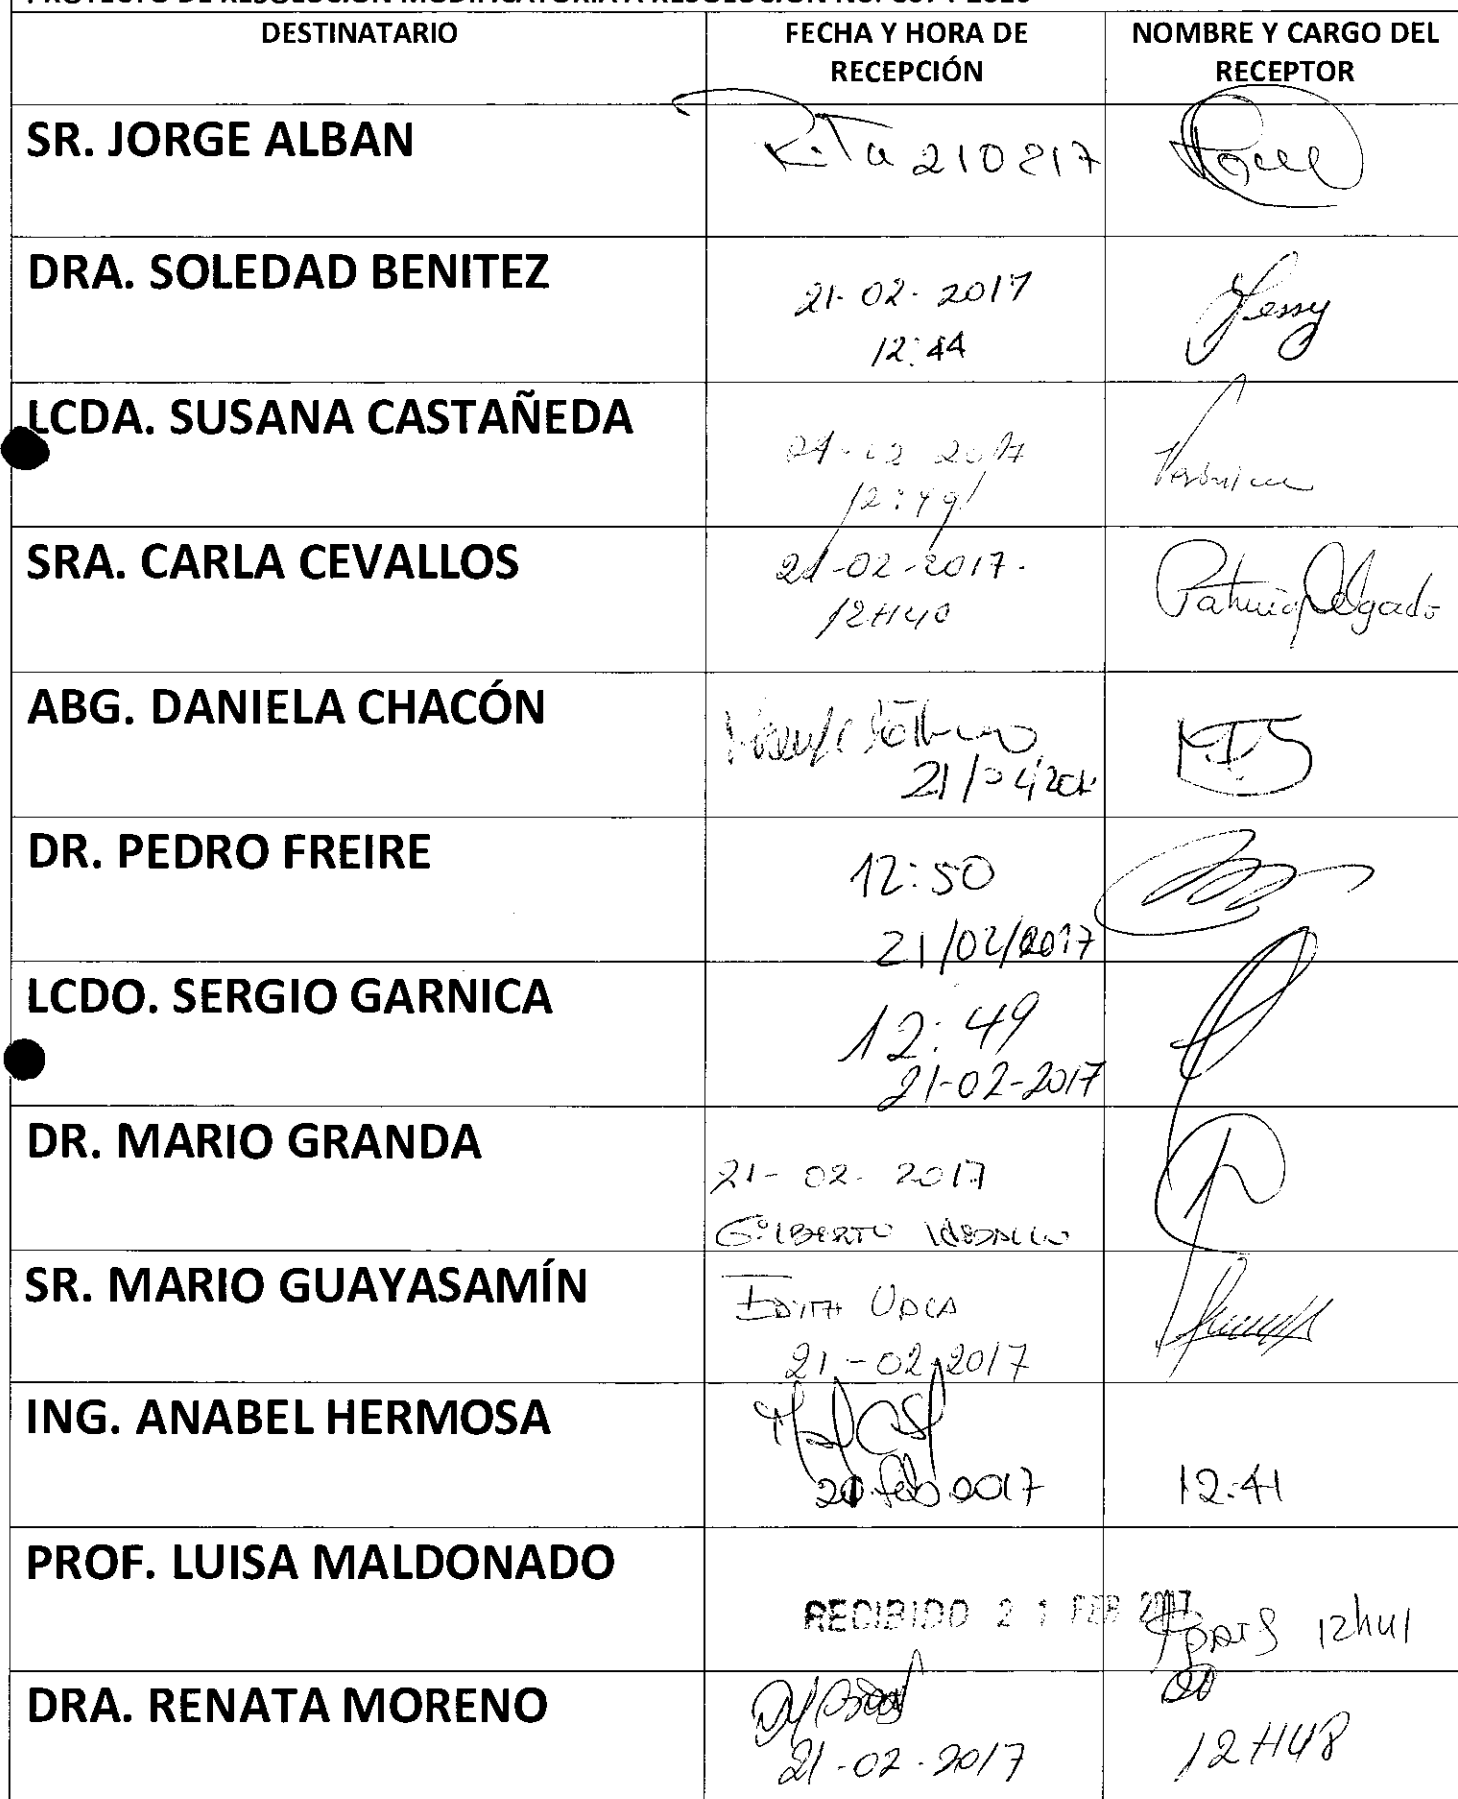 DESTINATARIO
FECHA Y HORA DE RECEPCIÓN
NOMBRE Y CARGO DEL RECEPTOR
SR. JORGE ALBAN
Rita 210217
DRA. SOLEDAD BENITEZ
21-02-2017
12:44
Jessy
LCDA. SUSANA CASTAÑEDA
2017
12:49
Verónica
SRA. CARLA CEVALLOS
21-02-2017.
12H40
Patricia Delgado
ABG. DANIELA CHACÓN
DR. PEDRO FREIRE
12:50
21/02/2017
LCDO. SERGIO GARNICA
12:49
21-02-2017
DR. MARIO GRANDA
21-02-2017
GILBERTO
SR. MARIO GUAYASAMÍN
EDITH
21-02-2017
ING. ANABEL HERMOSA
feb 2017
12:41
PROF. LUISA MALDONADO
RECIBIDO 21 FEB 2017
12h41
DRA. RENATA MORENO
21-02-2017
12H48